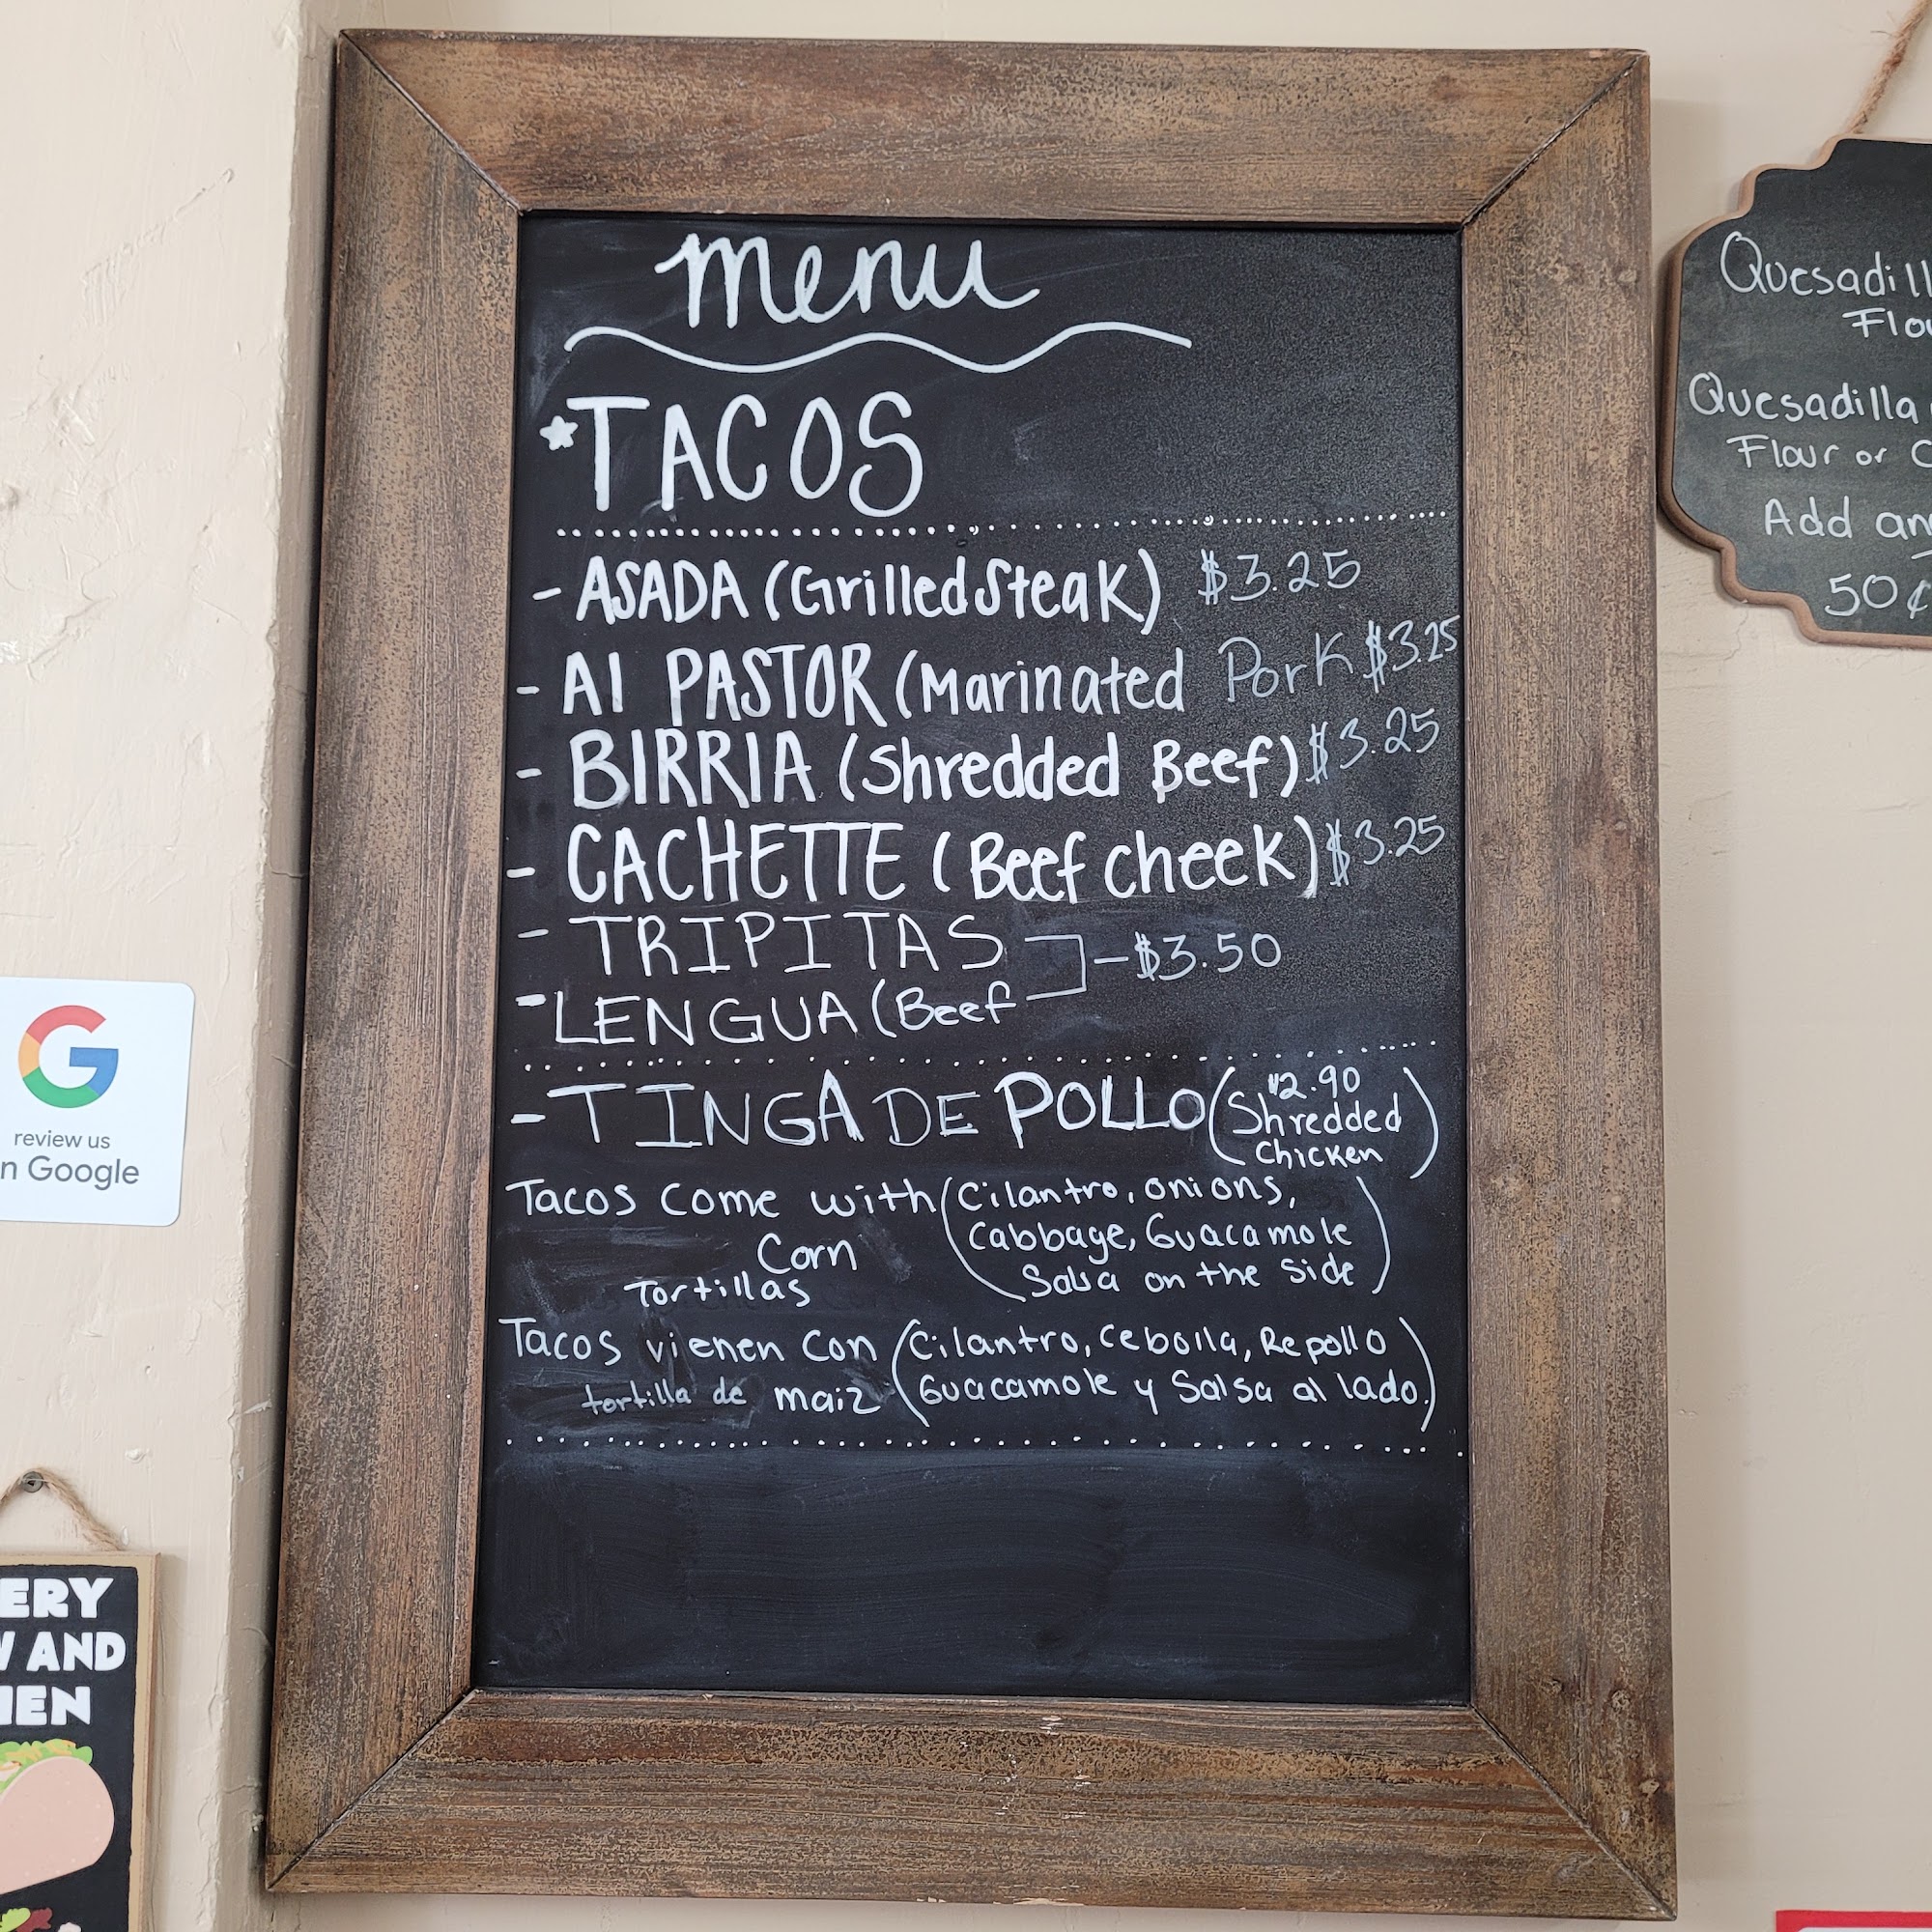 menu
TACOS
- ASADA (Grilled Steak) $3.25
- Al PASTOR (Marinated Pork $3.25
- BIRRIA (Shredded Beef) $3.25
- CACHETTE (Beef cheek) $3.25
- TRIPITAS
- $3.50
- LENGUA (Beef
- TINGA DE POLLO ($2.90
Shredded
Chicken)
Tacos come with (Cilantro, onions,
Corn
Cabbage, Guacamole
Tortillas
Salsa on the side)
Tacos vienen con (Cilantro, Cebolla, Repollo
tortilla de maiz
Guacamole y Salsa al lado.)
Quesadill
Flou
Quesadilla
Flour or C
Add an
50¢
G
review us
n Google
ERY
W AND
IEN